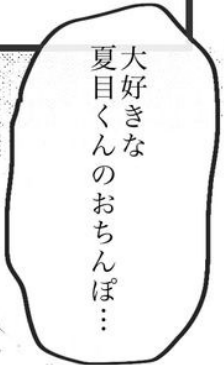 大好きな
夏目くんのおちんぽ…